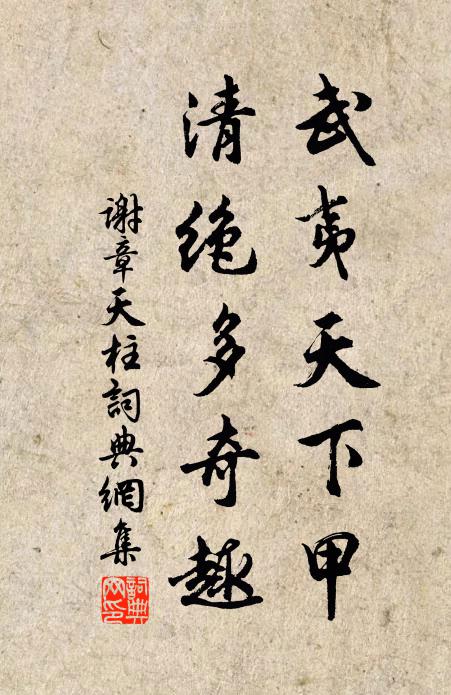 武夷天下甲
清绝多奇趣
谢章天柱詞典網集
詞典网印